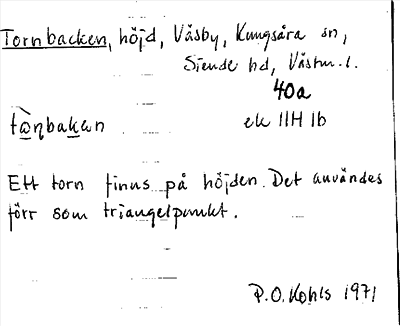 Tornbacken, höjd, Våsby, Kungsåra sn,
Siende hd, Västm. l.
40a
tɷ̀ṇbakan
ek 11H 1b
Ett torn finns på höjden. Det användes
förr som triangelpunkt.
P.O. Kohls 1971